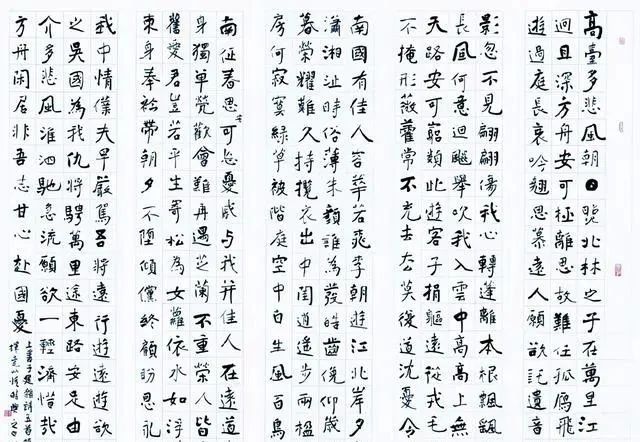 高臺多悲風朝日北林之子在萬里江
迴且深方舟安可極離思故難任孤鴈飛
遊過庭長哀吟翹思慕遠人願欲託遺音
影忽不見翩翩傷我心轉蓬離本根飄飄
長風何意迴飈舉吹我入雲中高高上無
天路安可窮類此遊客子捐軀遠從戎毛
不掩形薇藿常不充去去莫復道沈憂令
南國有佳人容華若桃李朝遊江北岸夕
瀟湘沚時俗薄朱顏誰為發皓齒俛仰歲
暮榮耀難久持攬衣出中閨逍遙步兩楹
房何寂寞綠草被階庭空中自生風百鳥
南征春思可忘憂戚与我并佳人在遠道
身獨單煢歡會難再遇芝蘭不重榮人皆
舊愛君豈若平生寄松為女蘿依水如浮
束身奉衿帶朝夕不墮傾儻終顧盼恩永
我中情僕夫早嚴駕吾將遠行遊遠遊欲
之吳國為我仇將騁萬里途東路安足由
介多悲風淮泗馳急流願欲一輕濟惜哉
方舟閑居非吾志甘心赴國憂
上書子建雜詩五首